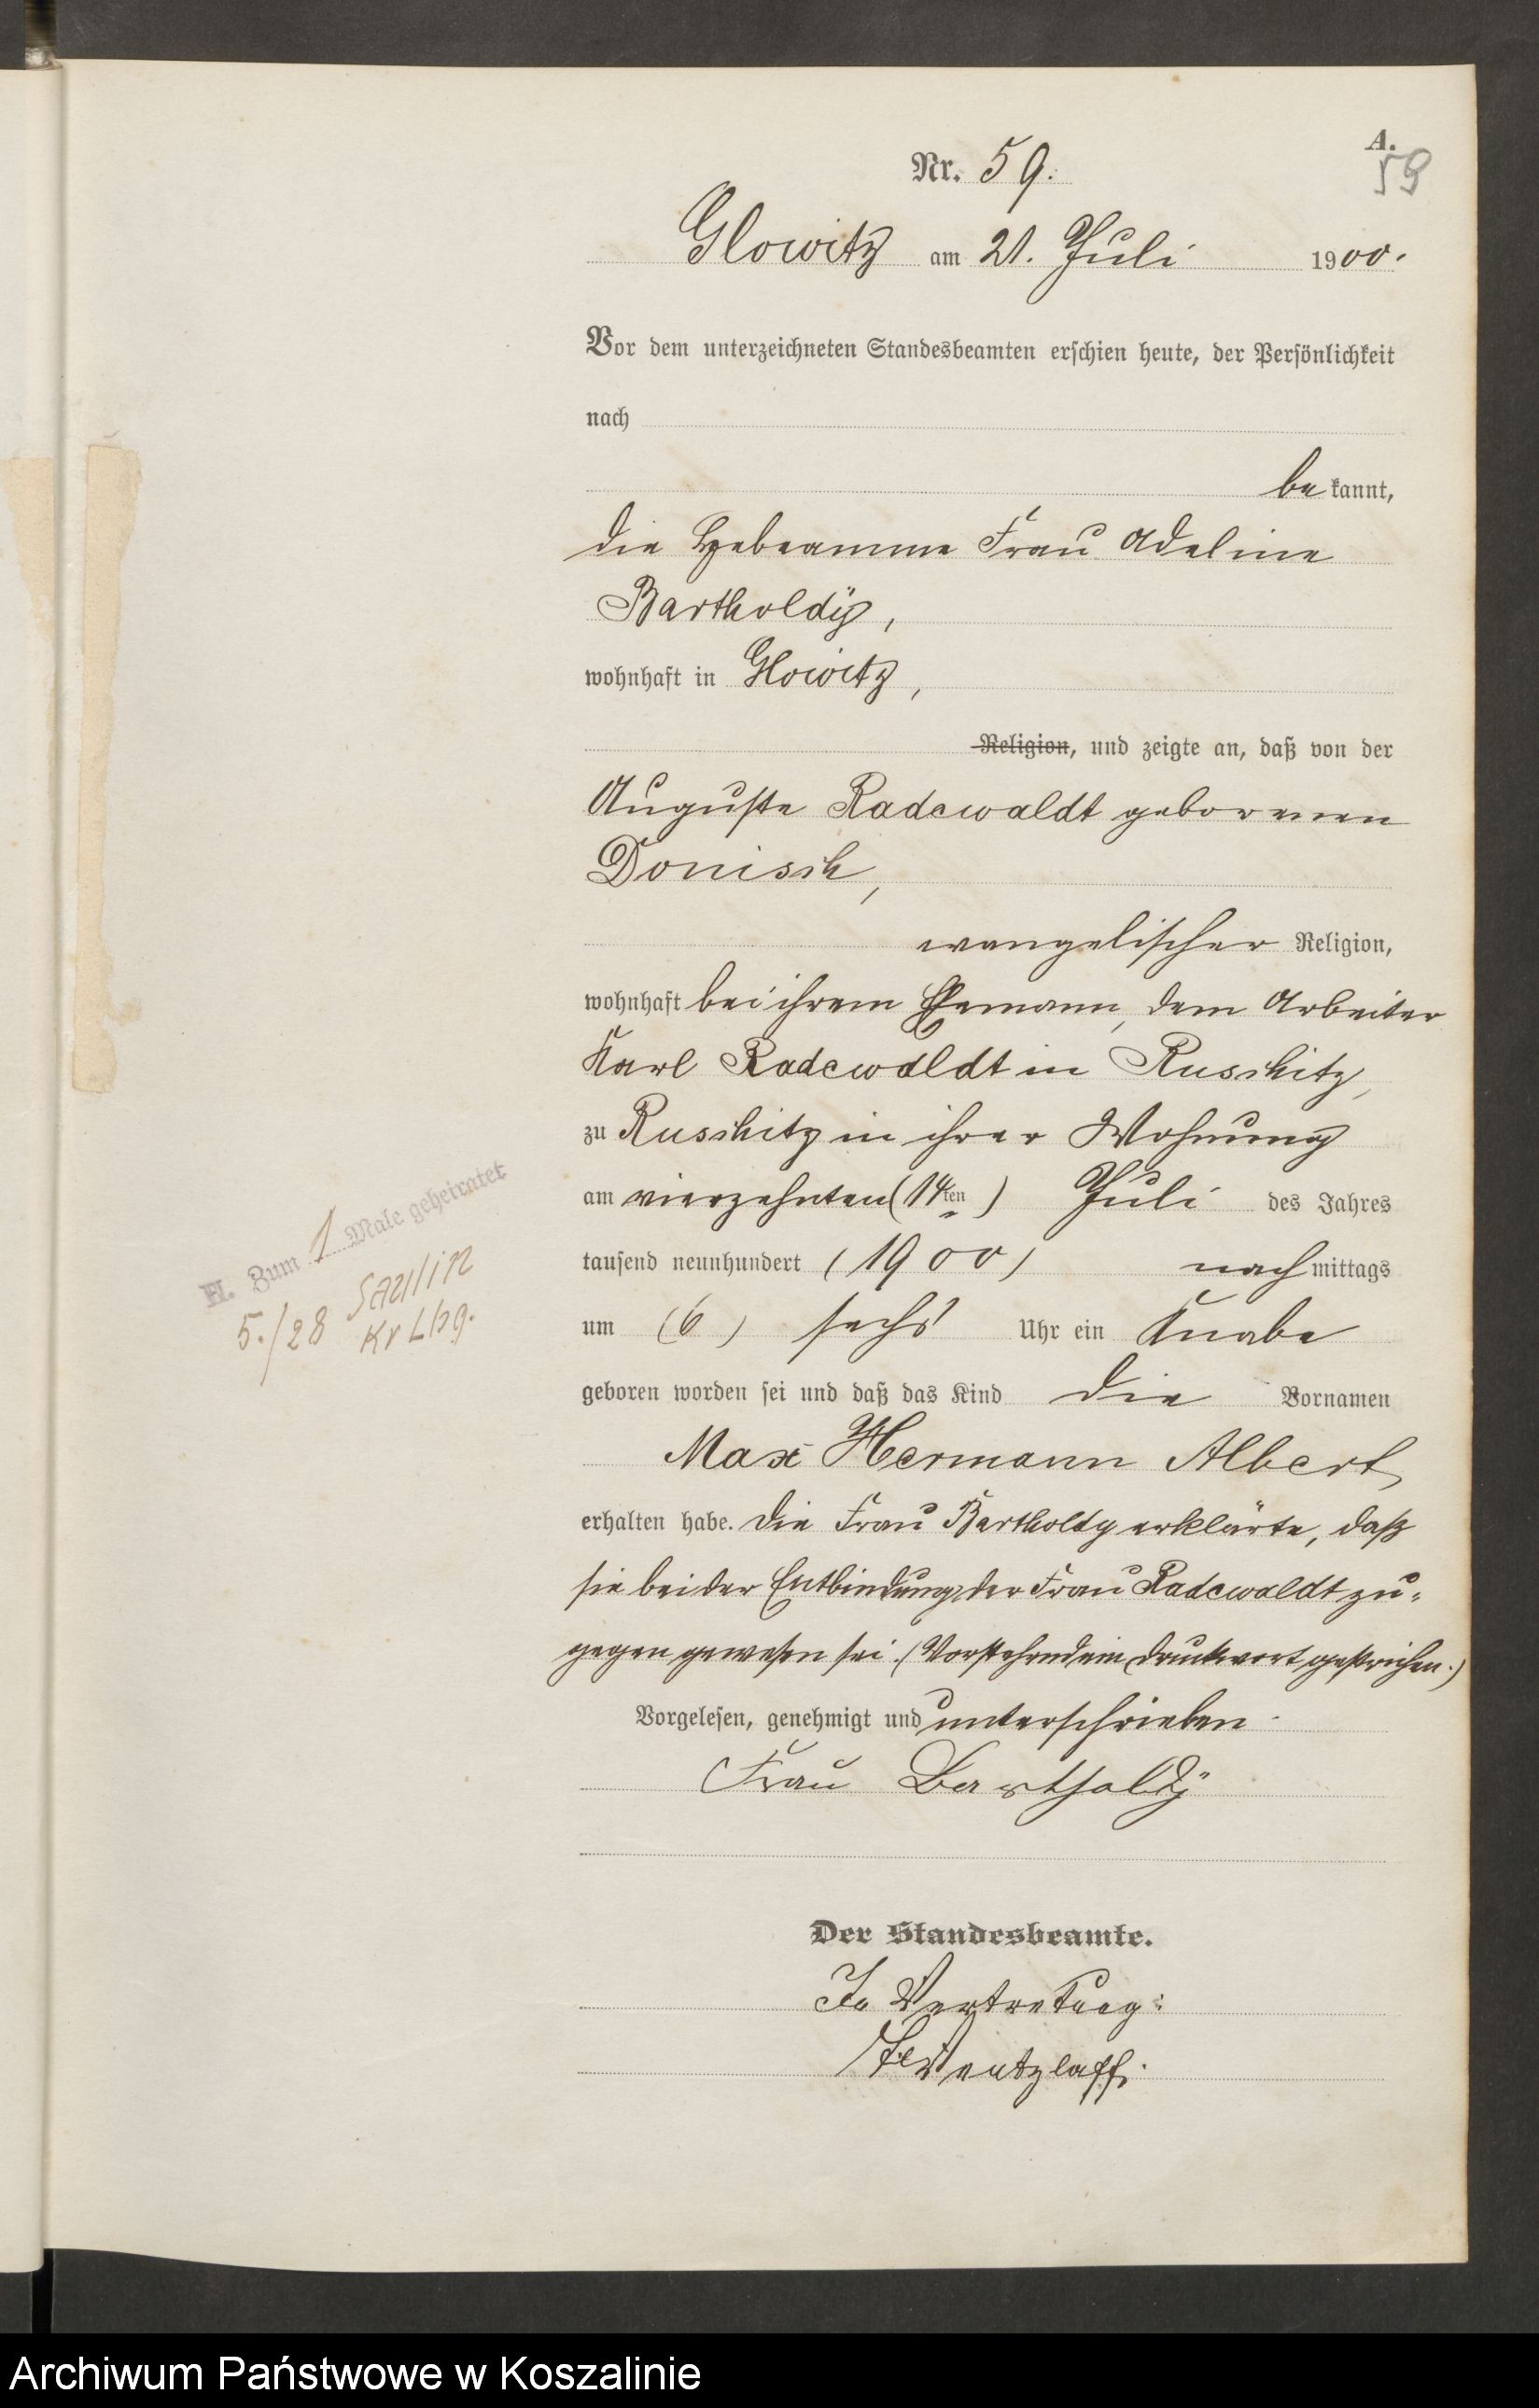 A.
59
Nr. 59.
Glowitz am 21. Juli 1900.
Vor dem unterzeichneten Standesbeamten erschien heute, der Persönlichkeit
nach
be kannt,
die Hebeamme Frau Adeline
Bartholdÿ,
wohnhaft in Glowitz,
Religion, und zeigte an, daß von der
Auguste Radewaldt geborenen
Donisch,
evangelischer Religion,
wohnhaft bei ihrem Ehemann, dem Arbeiter
Karl Radewaldt in Ruschitz,
zu Ruschitz in ihrer Wohnung
am vierzehnten (14ten) Juli des Jahres
tausend neunhundert (1900) nach mittags
um (6) sechs Uhr ein Knabe
geboren worden sei und daß das Kind die Vornamen
Max Hermann Albert
erhalten habe. Die Frau Bartholdy erklärte, daß
sie bei der Entbindung der Frau Radewaldt zu-
gegen gewesen sei. (Vorstehend ein Druckwort gestrichen.)
Vorgelesen, genehmigt und unterschrieben.
Frau Bartholdÿ
Der Standesbeamte.
In Vertretung:
Wentzlaff.
H. Zum 1 Male geheiratet
5./28 Saulin
Kr Lbg.
Archiwum Państwowe w Koszalinie